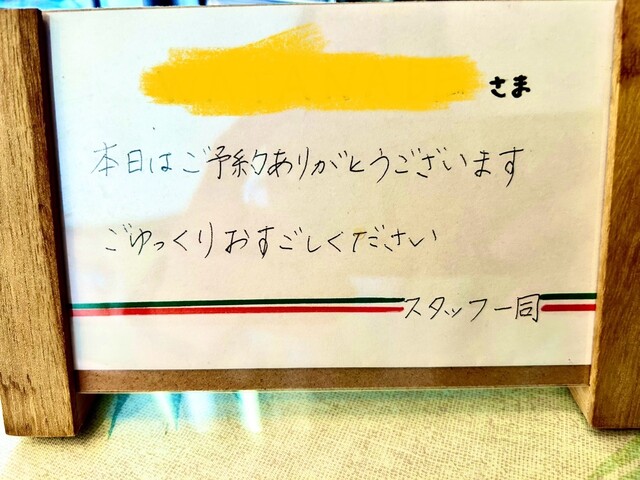 さま
本日はご予約ありがとうございます
ごゆっくりおすごしください
スタッフ一同